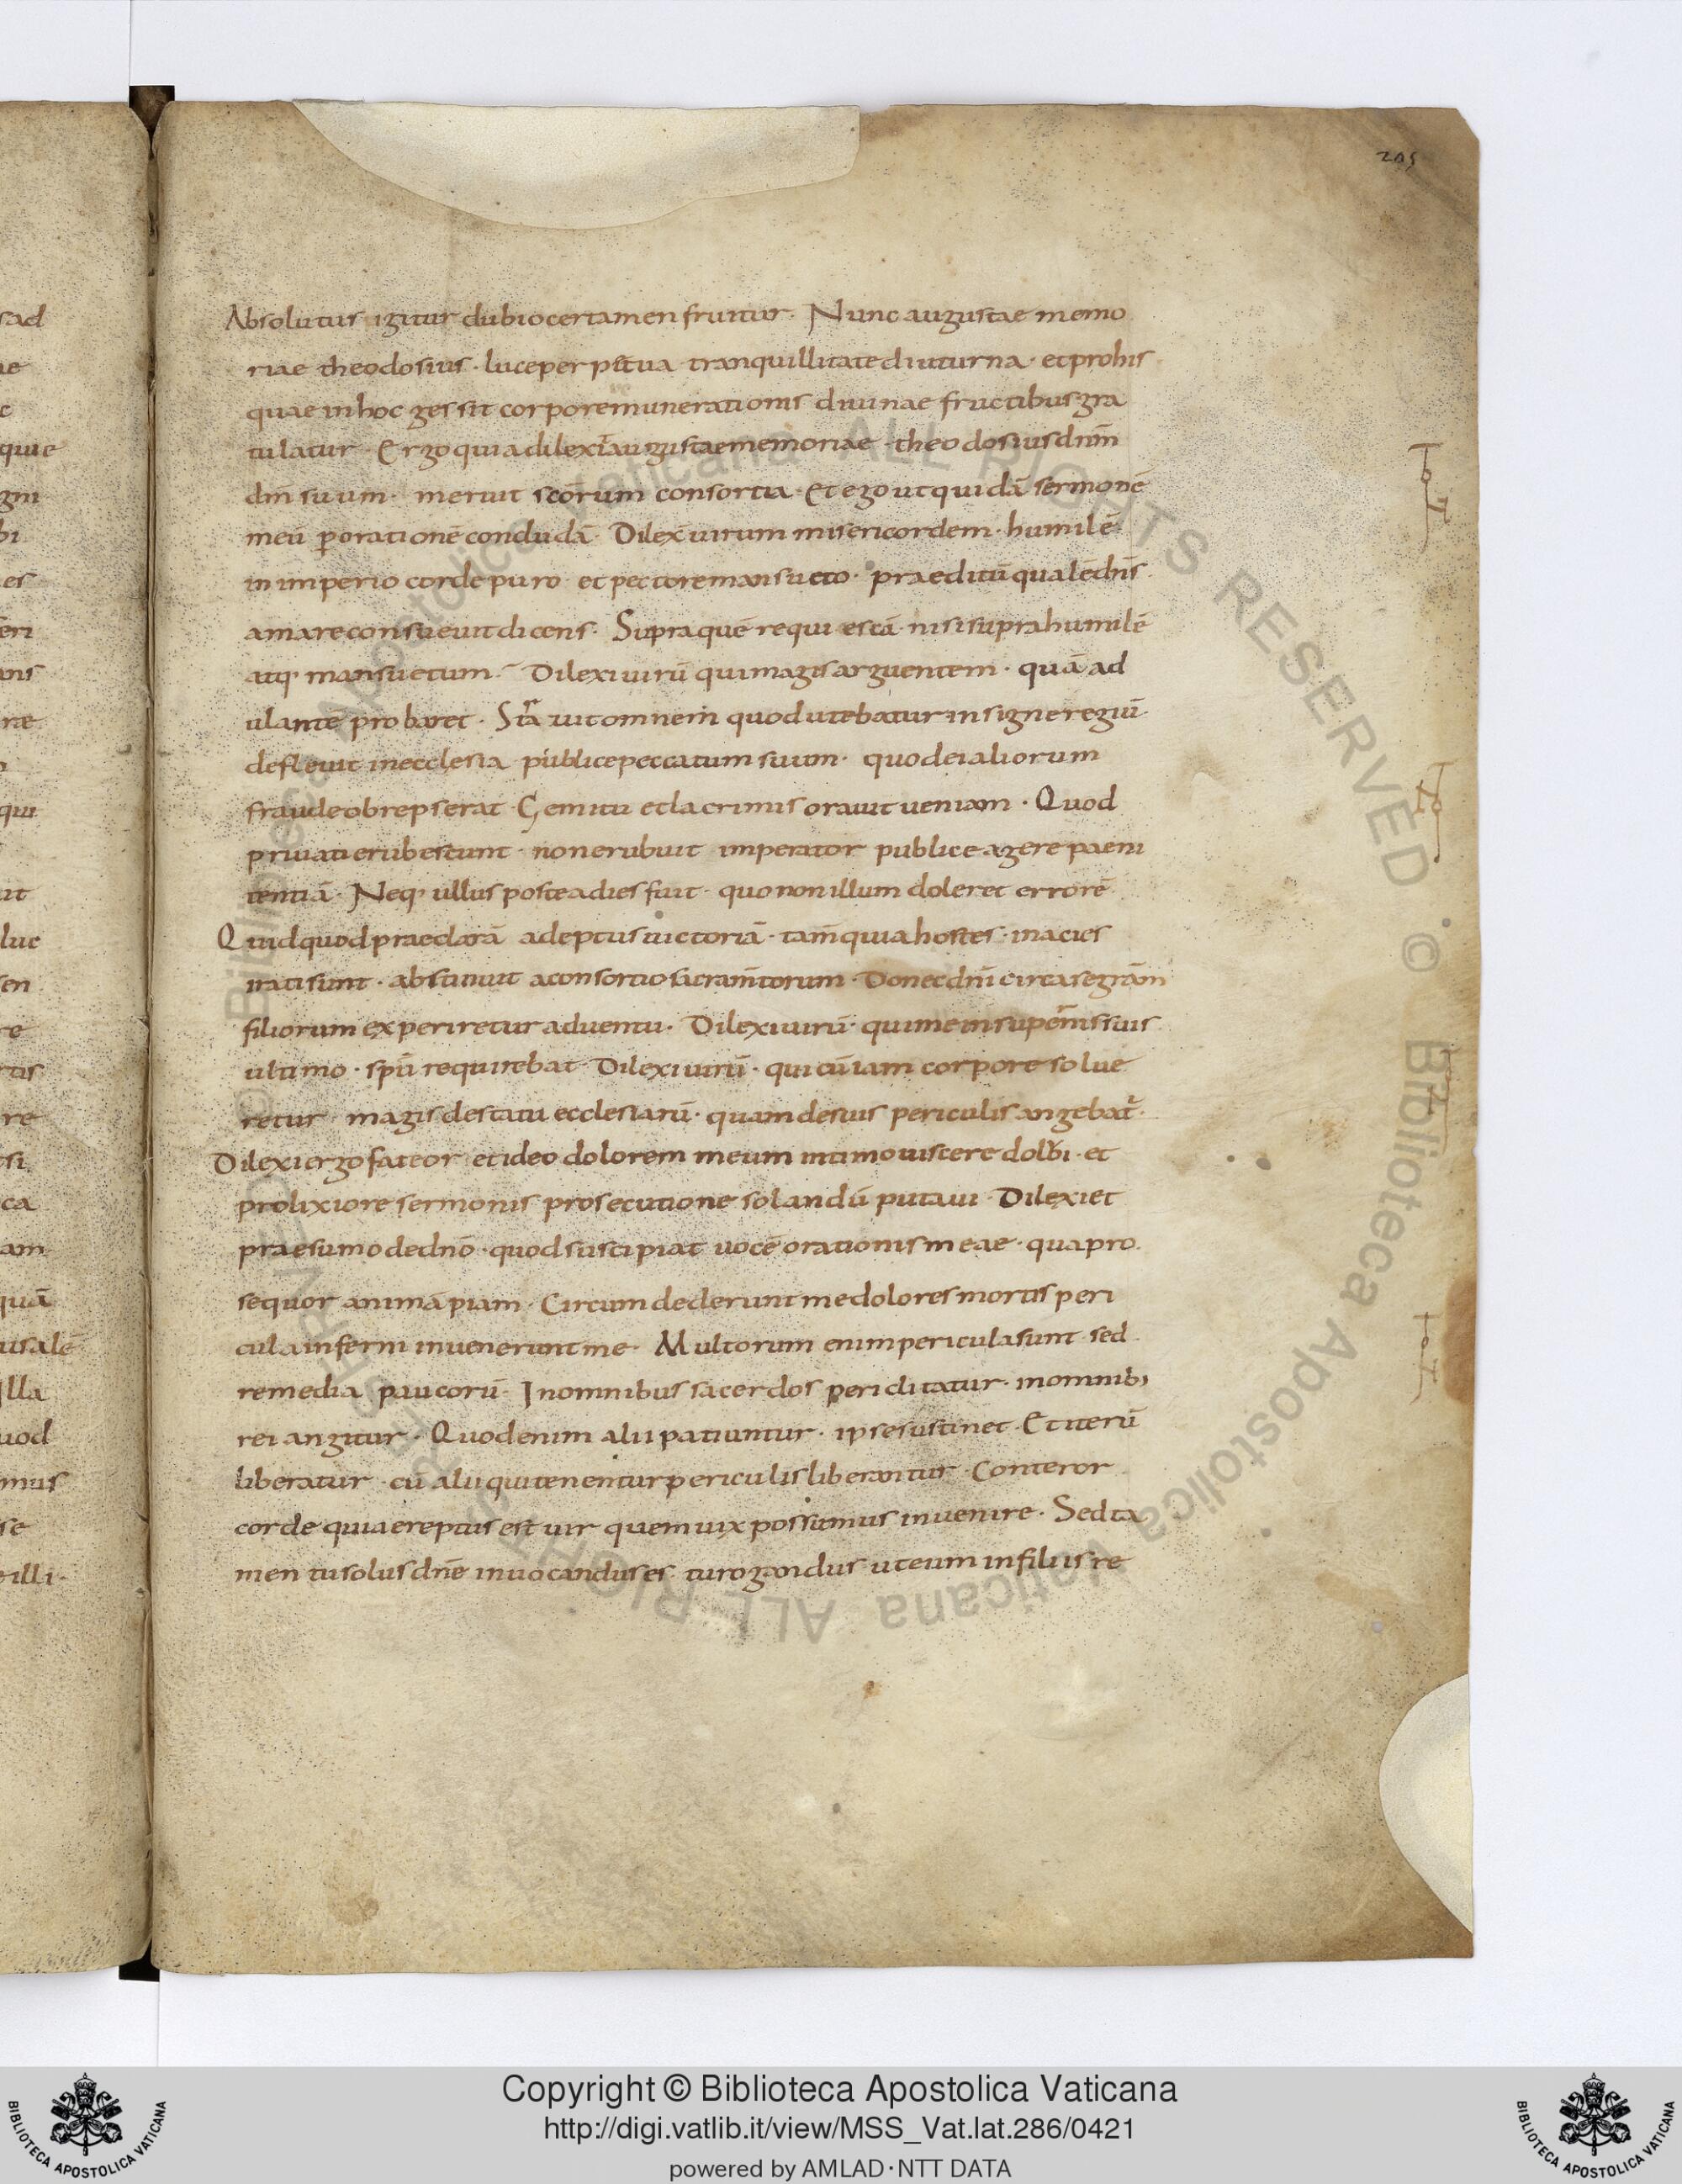 205
Absolutus igitur dubio certamen fruitur. Nunc augustae memo
riae theodosius. luce perpetua tranquillitate diuturna. et pro his
quae in hoc gessit corpore munerationis diuinae fructibus gra
tulatur. Ergo quia dilexit augustae memoriae theodosius dnm
dm suum. meruit scorum consortia. Et ego ut quidā sermonē
meū poratione concludā. Dilexi uirum misericordem. humilē
in imperio corde puro et pectore mansueto. praeditū qualē dns
amare consueuit dicens. Supra quē requiescā nisi supra humilē
atq mansuetum. Dilexi uirū qui magis arguentem. quā ad
ulantē probaret. Strauit omnem quod utebatur insigne regiū.
defleuit in ecclesia publice peccatum suum. quod ei aliorum
fraude obrepserat. Gemitu et lacrimis orauit ueniam. Quod
priuati erubescunt non erubuit imperator publice agere paeni
tentiā. Neq ullus postea dies fuit quo non illum doleret errorē
Quid quod praeclarā adeptus uictoriā. tam quia hostes in acies
strati sunt. abstinuit a consortio sacramtorum. Donec dni circa se gram
filiorum experiretur aduentu. Dilexi uirū qui me in supremis suis
ultimo. spū requirebat. Dilexi uirū. qui cū iam corpore solue
retur magis de statu ecclesiarū. quam de suis periculis angebat.
Dilexi ergo fateor et ideo dolorem meum intimo uiscere dolui. et
prolixiore sermonis prosecutione solandū putaui. Dilexi et
praesumo de dno. quod suscipiat uocē orationis meae. qua pro
sequor animā piam. Circumdederunt me dolores mortis peri
cula inferni inuenerunt me. Multorum enim pericula sunt sed
remedia paucorū. In omnibus sacerdos periclitatur. in omnib;
rei angitur. Quod enim alii patiuntur. ipse sustinet. Et iterū
liberatur cū alii qui tenentur periculis liberantur. Conteror
corde quia ereptus est uir quem uix possumus inuenire. Sed ta
men tu solus dne inuocandus es tu rogandus ut eum in filiis re
Copyright © Biblioteca Apostolica Vaticana
http://digi.vatlib.it/view/MSS_Vat.lat.286/0421
powered by AMLAD·NTT DATA